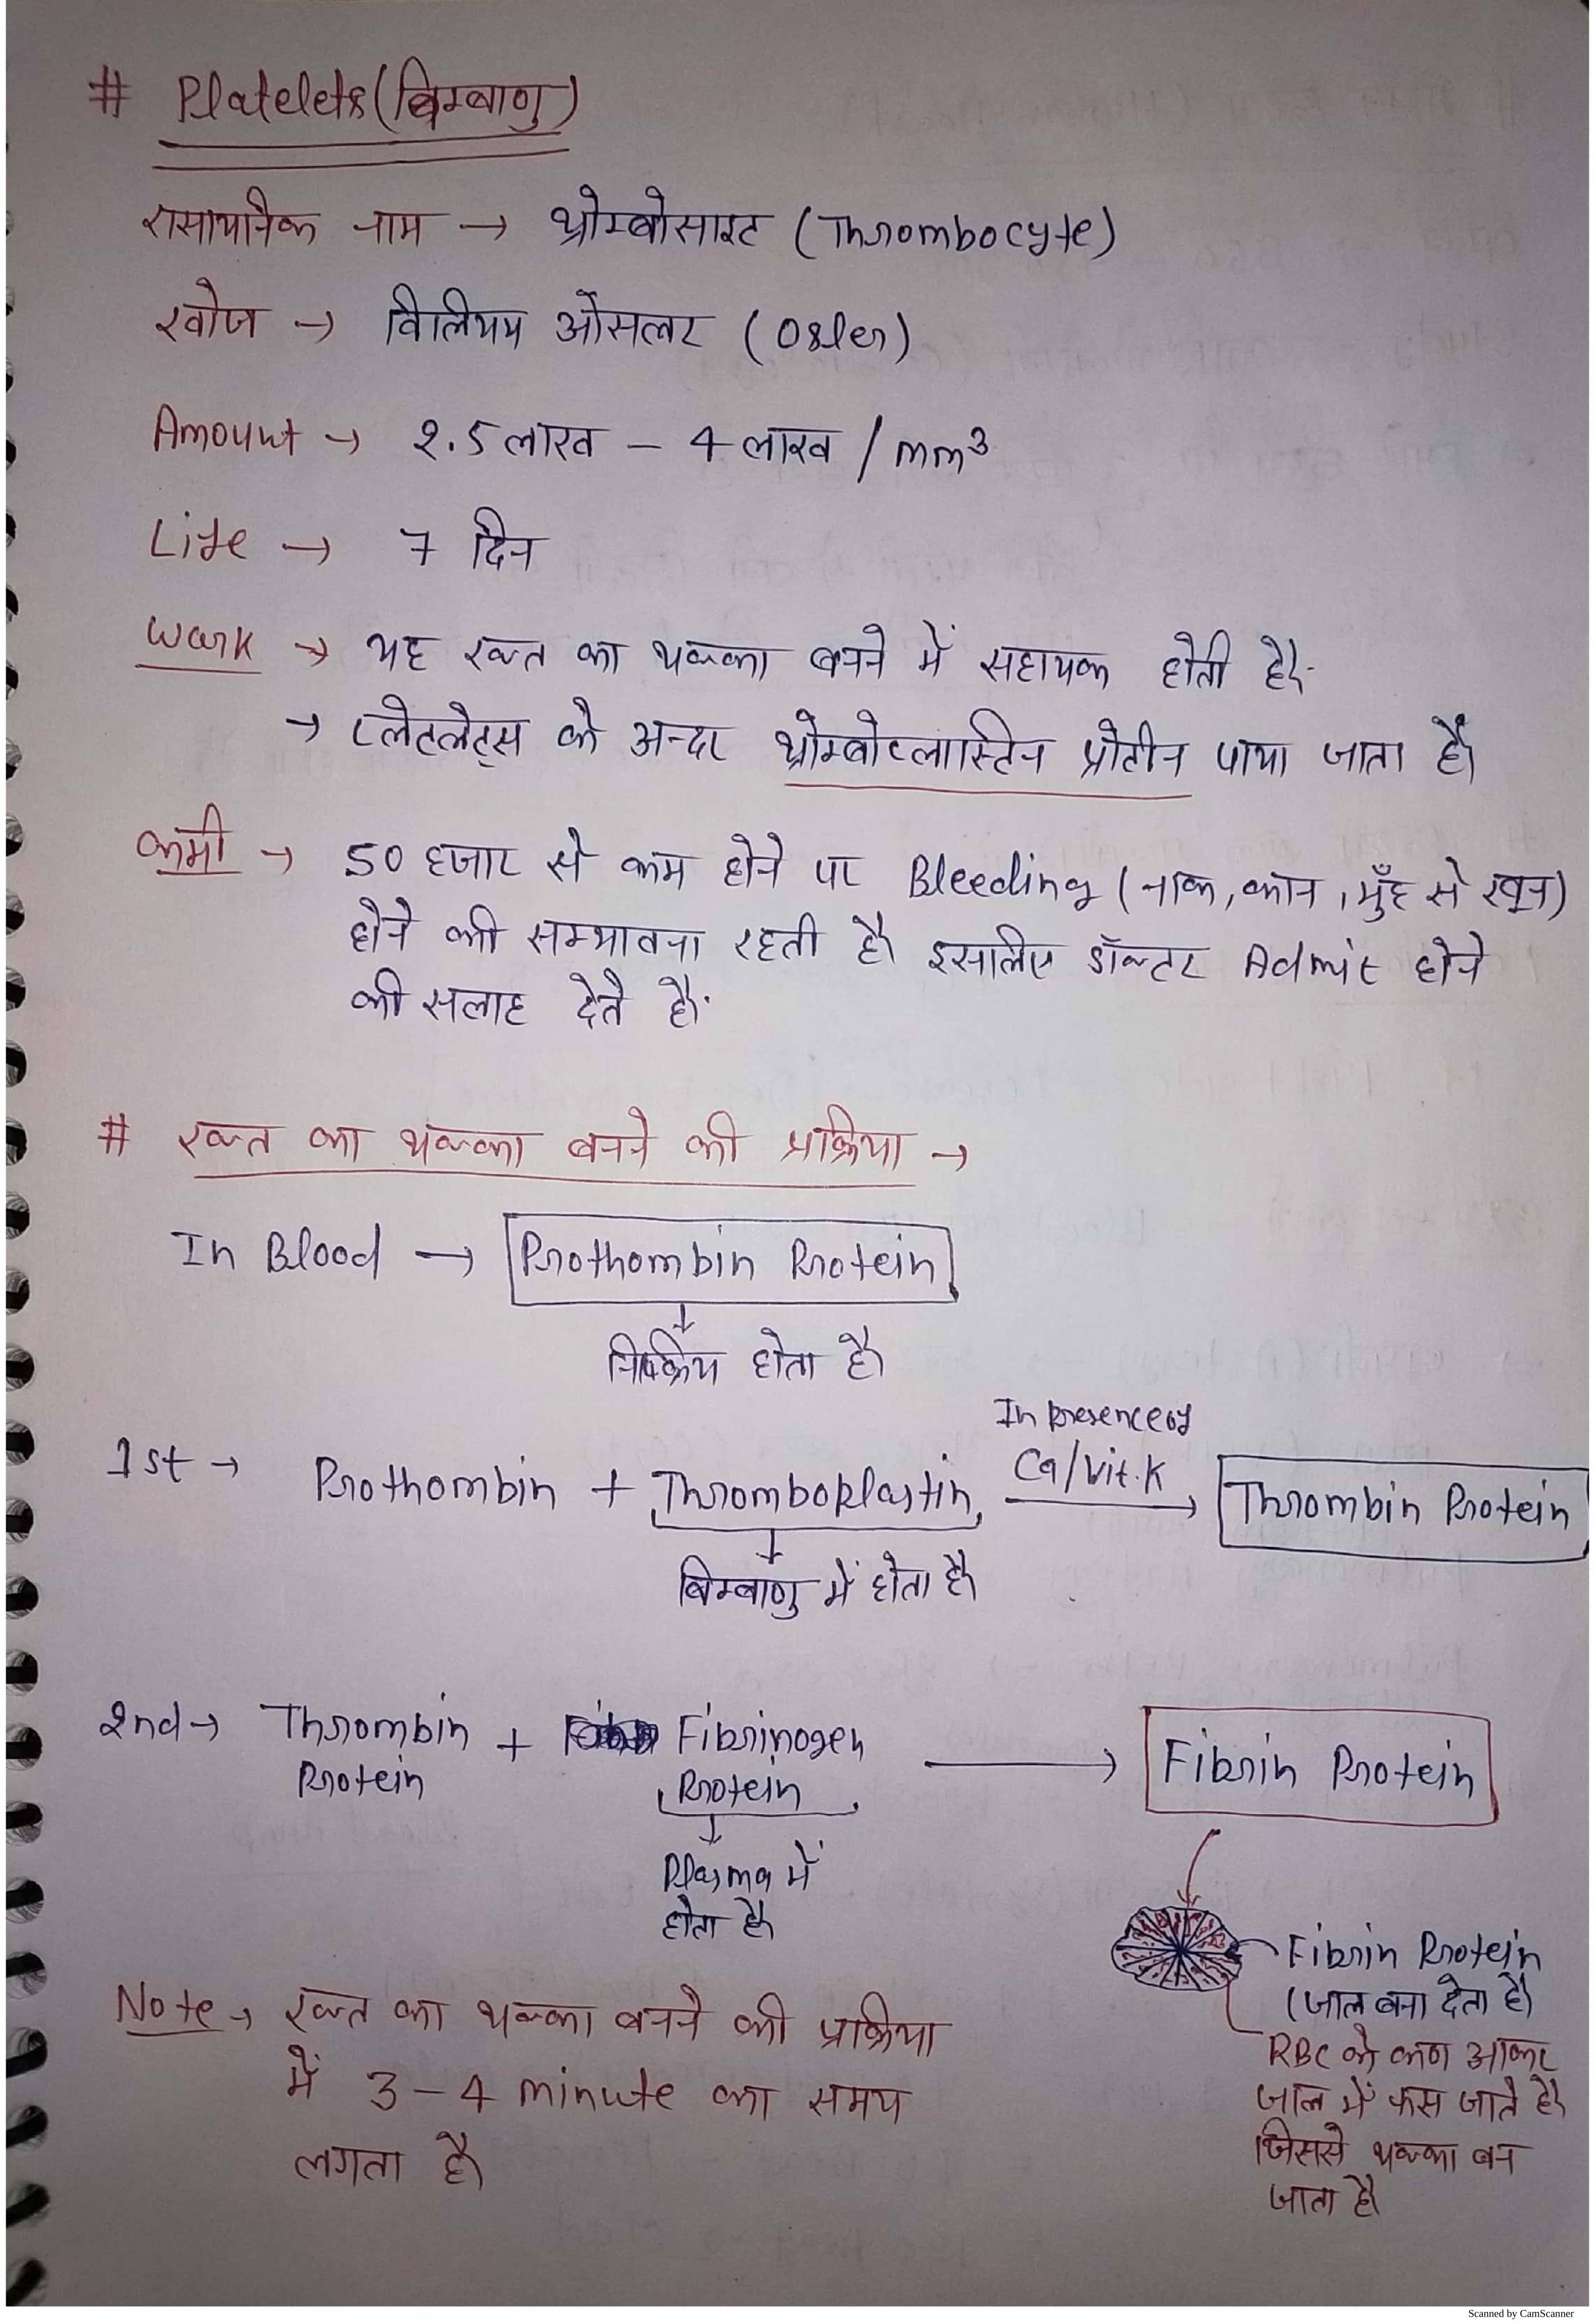 # Platelets (बिम्बाणु)
रासायनिक नाम → थ्रोम्बोसाइट (Thrombocyte)
खोज → विलियम ऑसलर (Osler)
Amount → 2.5 लाख – 4 लाख / mm³
Life → 7 दिन
Work → यह रक्त का थक्का बनने में सहायक होती है।
→ प्लेटलेट्स के अन्दर थ्रोम्बोप्लास्टिन प्रोटीन पाया जाता है।
कमी → 50 हजार से कम होने पर Bleeding (नाक, कान, मुँह से खून)
होने की सम्भावना रहती है। इसलिए डॉक्टर Admit होने
की सलाह देते है।
# रक्त का थक्का बनने की प्रक्रिया →
In Blood → Prothombin Protein
निष्क्रिय होता है।
In presence of
1st → Prothombin + Thromboplastin Ca/Vit.K → Thrombin Protein
बिम्बाणु में होता है।
2nd → Thrombin + Fibrinogen → Fibrin Protein
Protein Protein
Plasma में
होता है।
Fibrin Protein
(जाल बना देता है)
Note → रक्त का थक्का बनने की प्रक्रिया
में 3 – 4 minute का समय
लगता है।
RBC के कण आकर
जाल में फस जाते है।
जिससे थक्का बन
जाता है।
Scanned by CamScanner